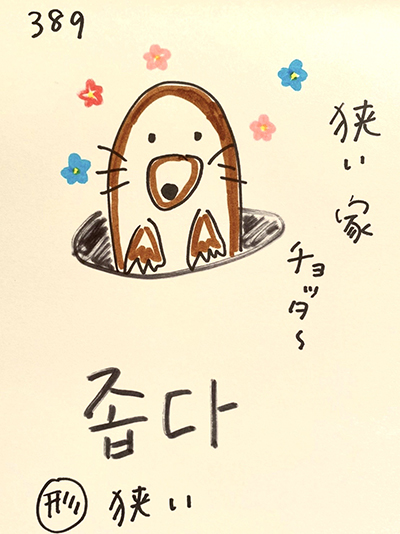 389
狭い家
チョッタ〜
좁다
形 狭い